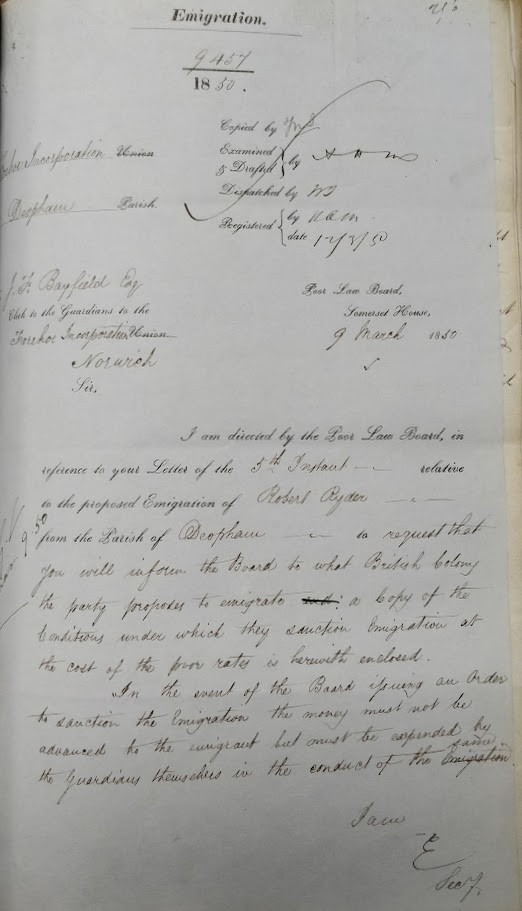 Emigration.
9457
1850.
Copied by
Examined
& Drafted } by
Dispatched by
Registered { by
date 12/3/50
Incorporation Union
Deopham Parish
J. F. Bayfield Esq
Clerk to the Guardians to the
Forehoe Incorporation Union
Norwich
Sir,
Poor Law Board,
Somerset House,
9 March 1850
I am directed by the Poor Law Board, in
reference to your Letter of the 5th Instant — relative
to the proposed Emigration of Robert Ryder —
from the Parish of Deopham — to request that
you will inform the Board to what British Colony
the party proposes to emigrate and: a Copy of the
Conditions under which they sanction Emigration at
the cost of the poor rates is herewith enclosed.
In the event of the Board issuing an Order
to sanction the Emigration the money must not be
advanced to the emigrant but must be expended by
the Guardians themselves in the conduct of the same Emigration
I am
Secy.